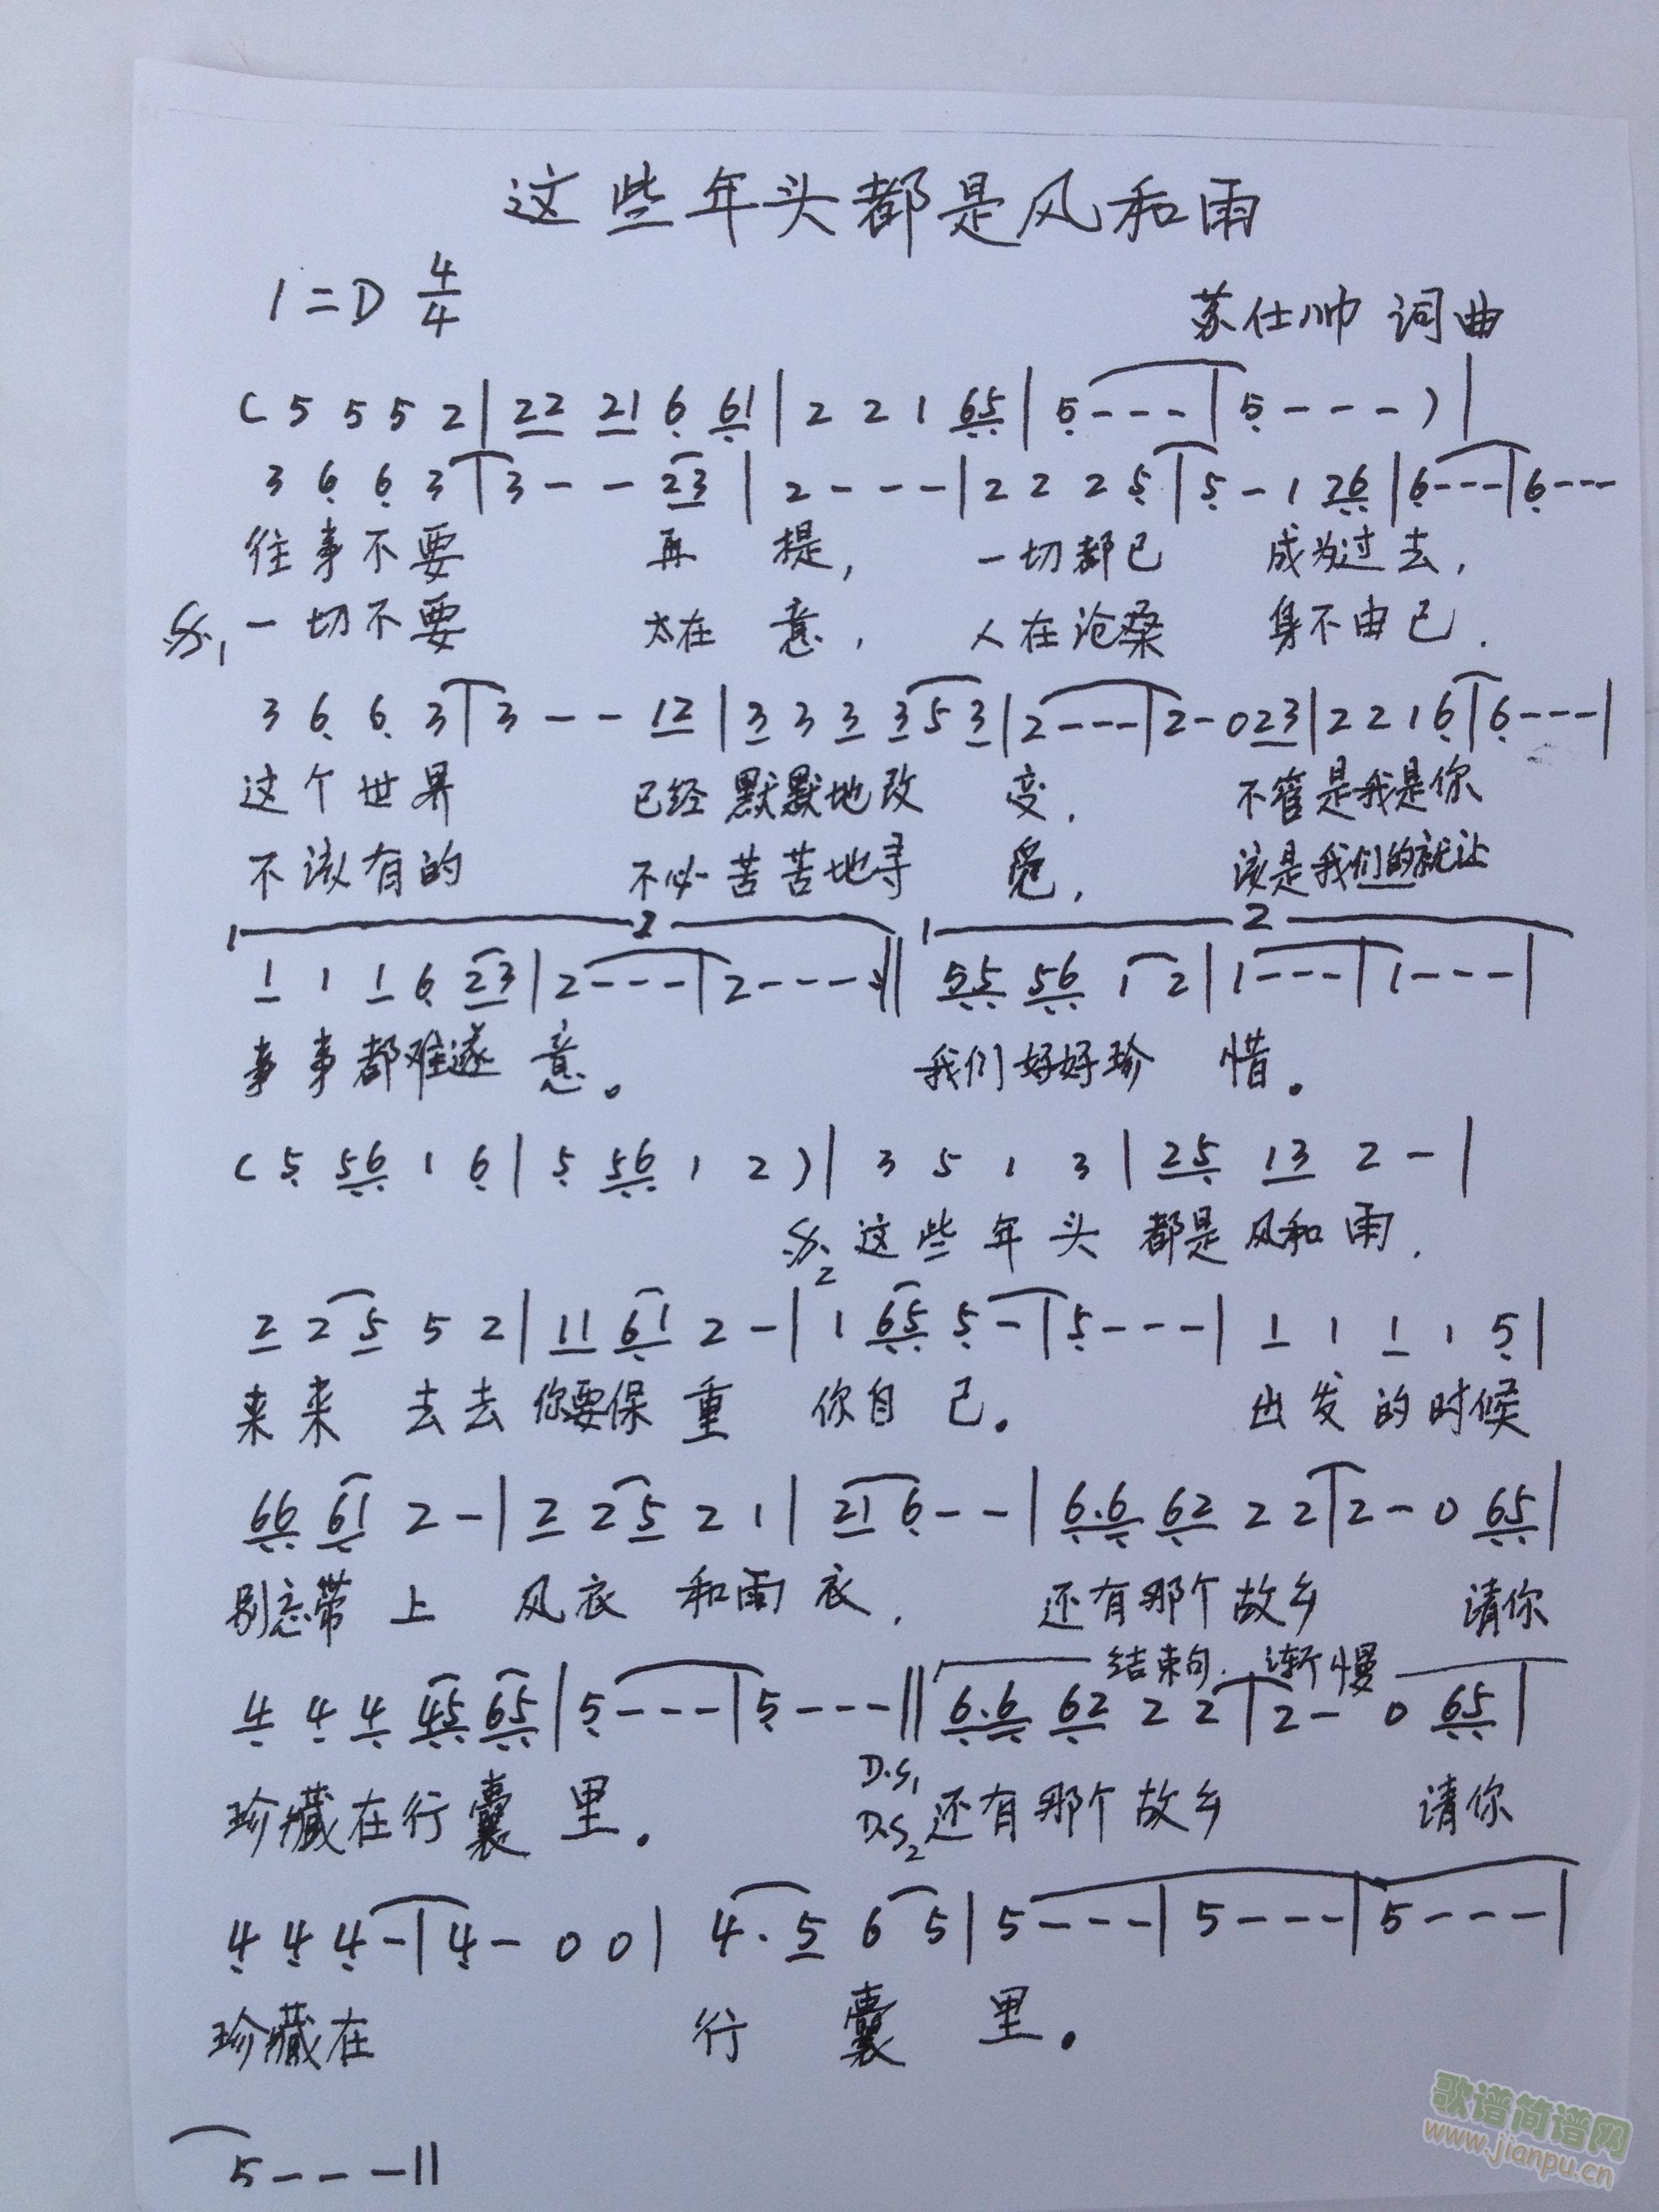 这些年头都是风和雨
1=D 4/4 苏仕帅 词曲
( 5 5 5 2 | 22 21 6 61 | 2 2 1 65 | 5 - - - | 5 - - - ) |
3 6 6 3 | 3 - - 23 | 2 - - - | 2 2 2 5 | 5 - 1 26 | 6 - - - | 6 - - -
往事不要 再 提, 一切都已 成为过去,
1 一切不要 太在 意, 人在沧桑 身不由己.
3 6 6 3 | 3 - - 12 | 3 3 3 3 5 3 | 2 - - - | 2 - 0 23 | 2 2 1 6 | 6 - - - |
这个世界 已经默默地改 变, 不管是我是你
不该有的 不必苦苦地寻 觅, 该是我们的就让
1 2 1 2
1 1 1 6 23 | 2 - - - | 2 - - - :|| 55 56 1 2 | 1 - - - | 1 - - - |
事事都难遂 意。 我们好好珍 惜。
( 5 56 1 6 | 5 56 1 2 ) | 3 5 1 3 | 25 13 2 - |
2 这些年头 都是风和雨,
2 2 5 5 2 | 11 61 2 - | 1 65 5 - | 5 - - - | 1 1 1 1 5 |
来来 去去你要保 重 你自 己。 出发的时候
66 61 2 - | 2 2 5 2 1 | 21 6 - - | 6.6 62 2 2 | 2 - 0 65 |
别忘带 上 风衣 和雨衣, 还有那个故乡 请你
结束句. 渐慢
4 4 4 45 65 | 5 - - - | 5 - - - || 6.6 62 2 2 | 2 - 0 65 |
D.S1
珍藏在行囊 里。 D.S2 还有那个故乡 请你
4 4 4 - | 4 - 0 0 | 4. 5 6 5 | 5 - - - | 5 - - - | 5 - - - |
珍藏在 行 囊 里。
5 - - - ||
歌谱简谱网
www.jianpu.cn